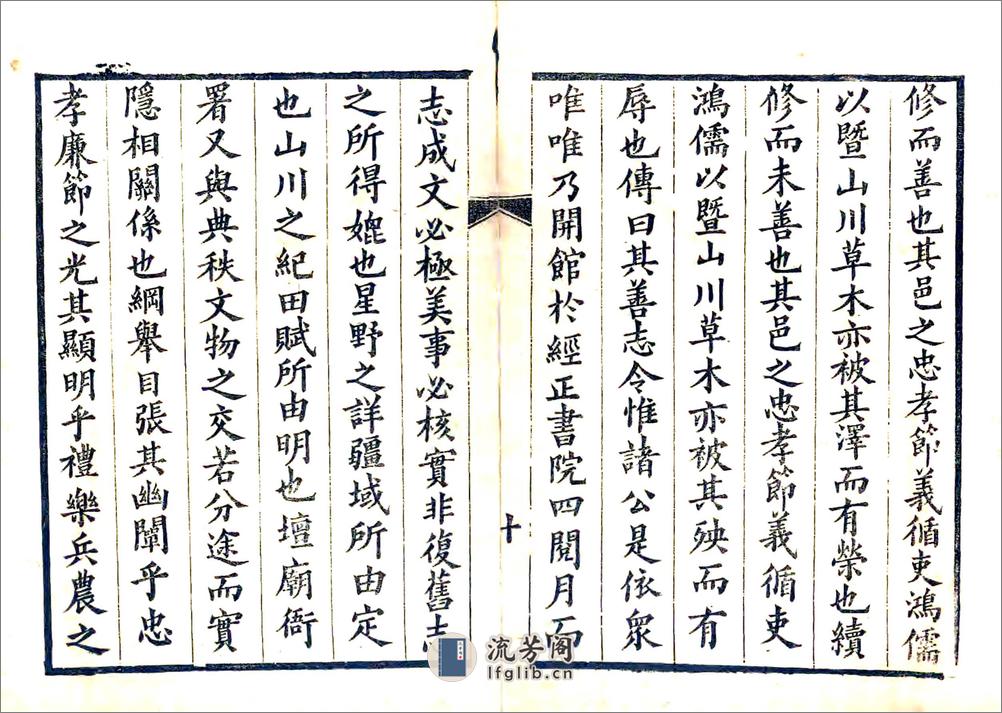 修而善也其邑之忠孝節義循吏鴻儒
以暨山川草木亦被其澤而有榮也續
修而未善也其邑之忠孝節義循吏
鴻儒以暨山川草木亦被其殃而有
辱也傳曰其善志令惟諸公是依眾
唯唯乃開館於經正書院四閱月而
十
志成文必極美事必核實非復舊志
之所得媲也星野之詳疆域所由定
也山川之紀田賦所由明也壇廟衙
署又與典秩文物之交若分途而實
隱相關係也綱舉目張其幽闡乎忠
孝廉節之光其顯明乎禮樂兵農之
流芳阁
lfglib.cn